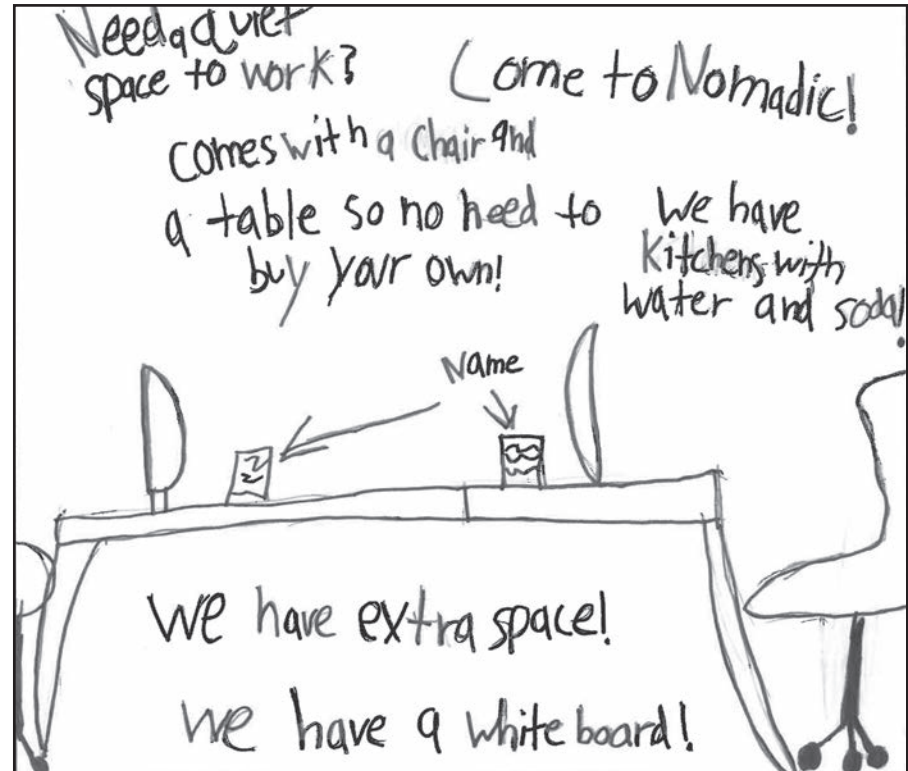 Need a quiet
space to work?
Come to Nomadic!
comes with a chair and
a table so no need to
buy your own!
We have
Kitchens with
water and soda!
Name
We have extra space!
We have a whiteboard!